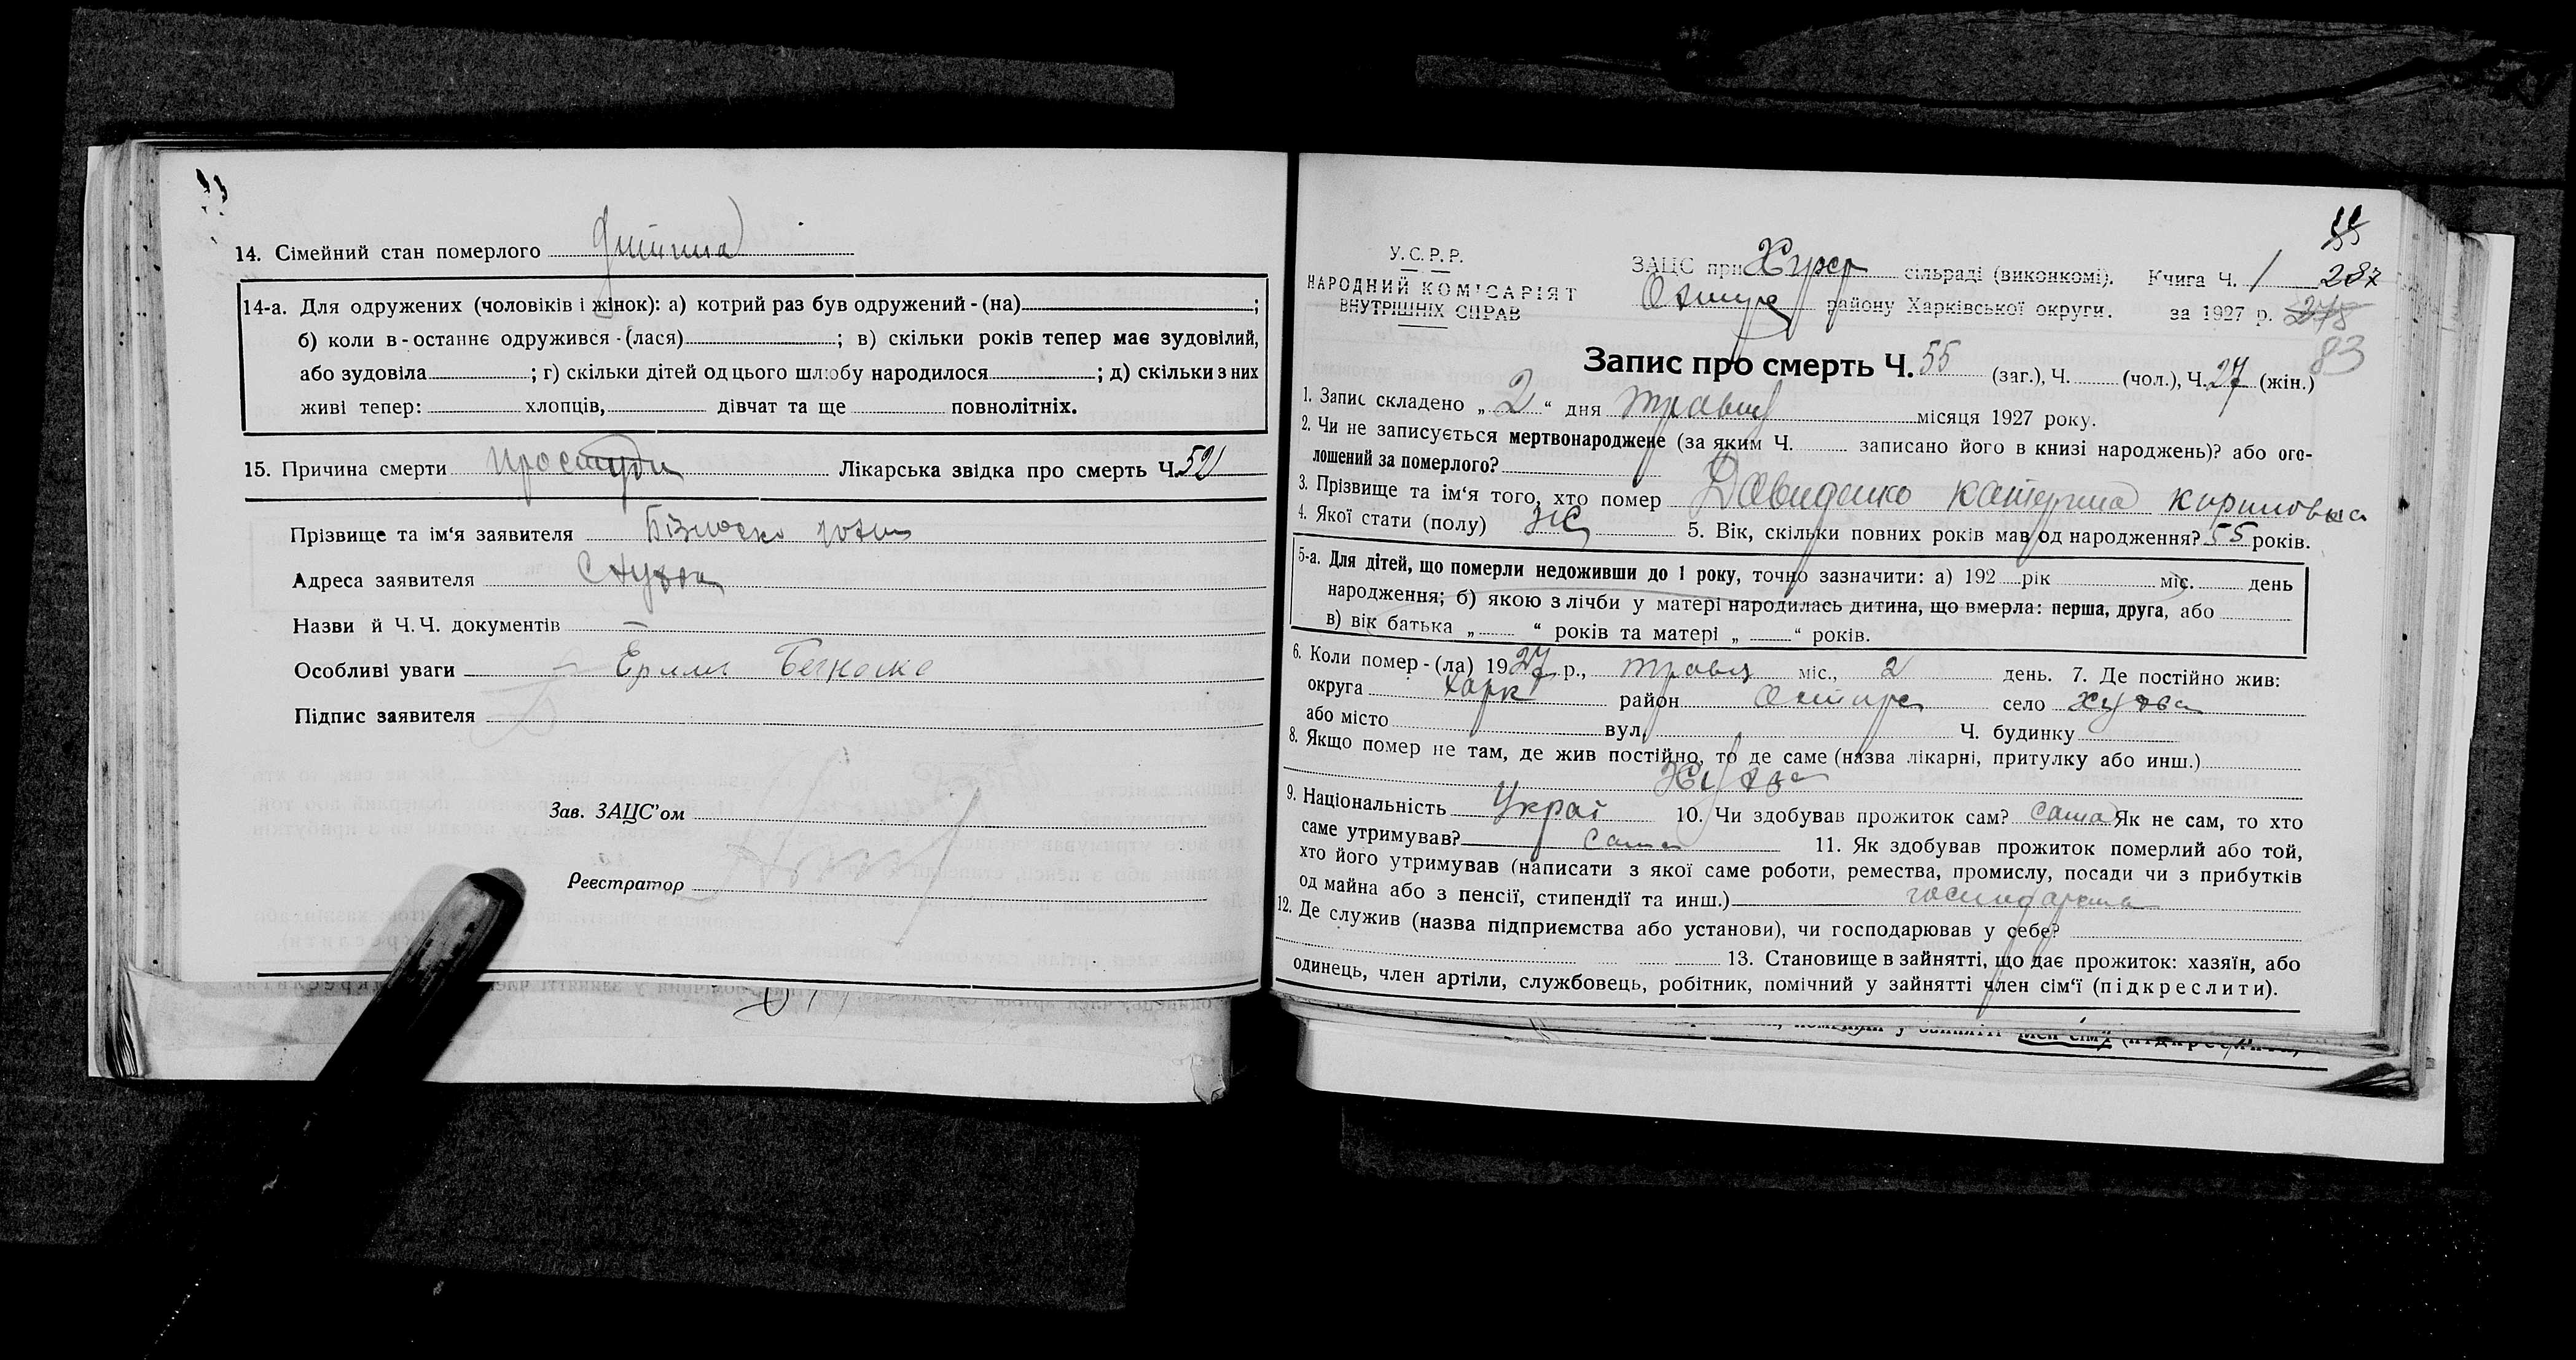 14. Сімейний стан померлого
14-а. Для одружених (чоловіків і жінок): а) котрий раз був одружений - (на) ;
б) коли в - останнє одружився - (лася) ; в) скільки років тепер має зудовілий,
або зудовіла ; г) скільки дітей од цього шлюбу народилося ; д) скільки з них
живі тепер: хлопців, дівчат та ще повнолітніх.
15. Причина смерти простуди Лікарська звідка про смерть Ч. 521
Прізвище та ім‘я заявителя
Адреса заявителя
Назви й Ч.Ч. документів —
Особливі уваги
Підпис заявителя
Зав. ЗАЦС'ом
Реєстратор
55
У.С.Р.Р.
НАРОДНИЙ КОМІСАРІЯТ
ВНУТРІШНІХ СПРАВ
ЗАЦС при сільраді (виконкомі). Книга Ч. 1 287
району Харківської округи. за 1927 р. 275
83
Запис про смерть Ч. 55 (заг.), Ч. (чол.), Ч. 27 (жін.)
1. Запис складено „ 2 “ дня травня місяця 1927 року.
2. Чи не записується мертвонароджене (за яким Ч. записано його в книзі народжень)? або ого-
лошений за померлого?
3. Прізвище та ім‘я того, хто помер Давиденко Катерина
4. Якої стати (полу) жі 5. Вік, скільки повних років мав од народження? 55 років.
5-а. Для дітей, що померли недоживши до 1 року, точно зазначити: а) 192 рік міс. день
народження; б) якою з лічби у матері народилась дитина, що вмерла: перша, друга, або
в) вік батька „ “ років та матері „ “ років.
6. Коли помер - (ла) 1927 р., травня міс., 2 день. 7. Де постійно жив:
округа Харк район село
або місто вул. Ч. будинку
8. Якщо помер не там, де жив постійно, то де саме (назва лікарні, притулку або инш.)
9. Національність Украї 10. Чи здобував прожиток сам? сама Як не сам, то хто
саме утримував? сама 11. Як здобував прожиток померлий або той,
хто його утримував (написати з якої саме роботи, ремества, промислу, посади чи з прибутків
од майна або з пенсії, стипендії та инш.)
12. Де служив (назва підприємства або установи), чи господарював у себе?
13. Становище в зайнятті, що дає прожиток: хазяїн, або
одинець, член артіли, службовець, робітник, помічний у зайнятті член сім‘ї (підкреслити).